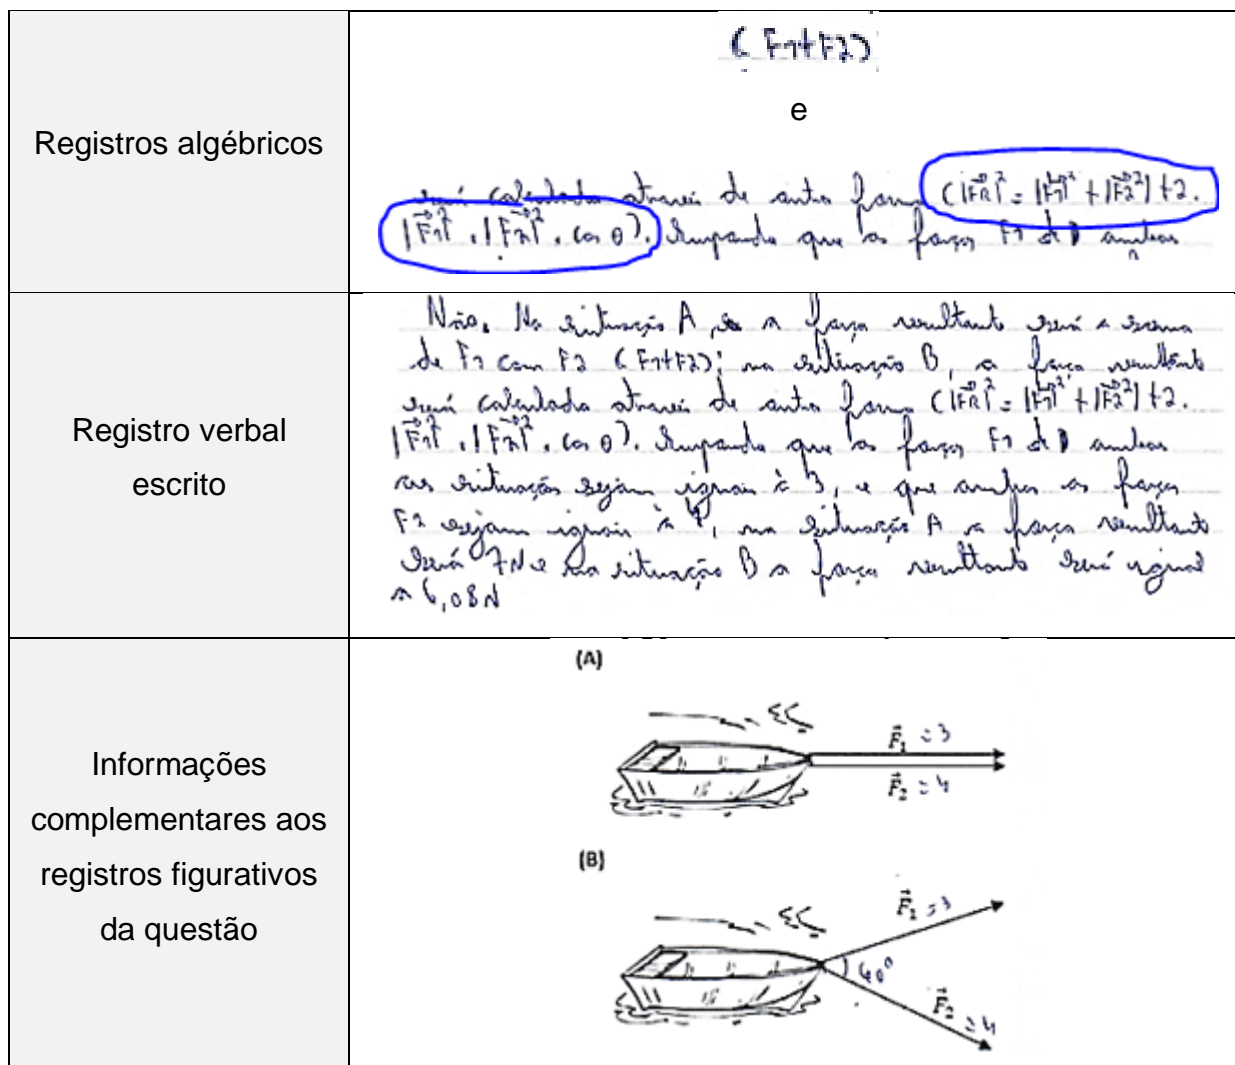 Registros algébricos
(F1+F2)
e
será calculada através de outra forma (|F⃗R|² = |F⃗1|² + |F⃗2|²) +2.
|F⃗1|² . |F⃗2|² . cos θ). Supondo que as forças F1 d ambas
Registro verbal
escrito
Não. Na situação A a força resultante será a soma
de F1 com F2 (F1+F2); na situação B, a força resultante
será calculada através de outra forma (|F⃗R|² = |F⃗1|² + |F⃗2|²| +2.
|F⃗1|² . |F⃗2|² . cos θ). Supondo que as forças F1 d ambas
as situação sejam iguais à 3, e que ambas as forças
F2 sejam iguais à 4, na situação A a força resultante
será 7N e na situação B a força resultante será igual
a 6,08N
Informações
complementares aos
registros figurativos
da questão
(A)
F⃗1 = 3
F⃗2 = 4
(B)
F⃗1 = 3
60°
F⃗2 = 4